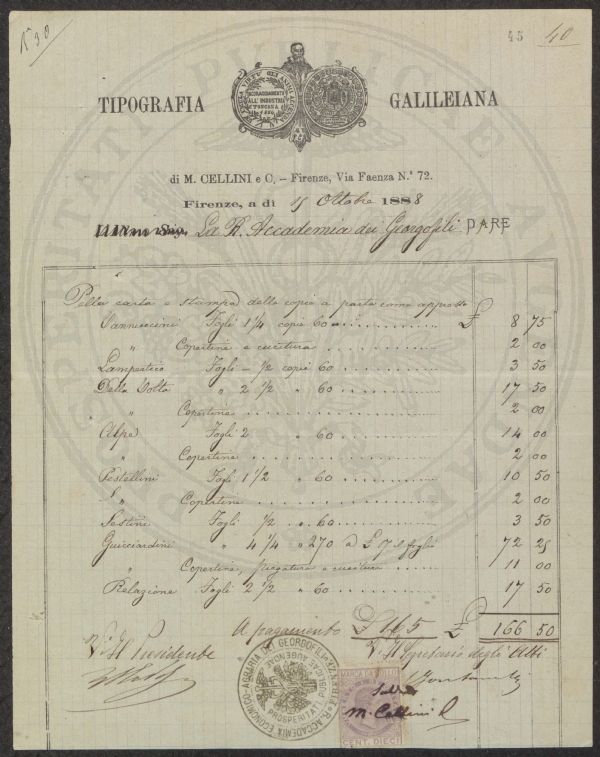 N° 90
45
40
TIPOGRAFIA GALILEIANA
INCORAGGIAMENTO ALL'INDUSTRIA TOSCANA
di M. CELLINI e C. – Firenze, Via Faenza N.° 72.
Firenze, a dì 15 Ottobre 1888
La R. Accademia dei Georgofili DARE
Per carta e stampa delle copie a parte come appresso
Vannuccini Fogli 1 1/4 copie 60 £ 8 75
" Copertine e cucitura 2 00
Lampertico Fogli – 1/2 copie 60 3 50
Dalla Volta " 2 1/2 " 60 17 50
" Copertine 2 00
Alpe Fogli 2 " 60 14 00
" Copertine 2 00
Pestellini Fogli 1 1/2 " 60 10 50
" Copertine 2 00
Sestini Fogli 1/2 " 60 3 50
Guicciardini " 4 1/4 " 270 a £ 17 il foglio 72 25
" Copertine, e cucitura 11 00
Relazione Fogli 2 1/2 " 60 17 50
A pagamento £ 165 £ 166 50
V° Il Presidente
V° Il Segretario degli Atti
R. ACCADEMIA ECONOMICO-AGRARIA DEI GEORGOFILI
PROSPERITATI PUBLICAE AUGENDAE
MARCA DA BOLLO
Saldato
M. Cellini C
CENT. DIECI